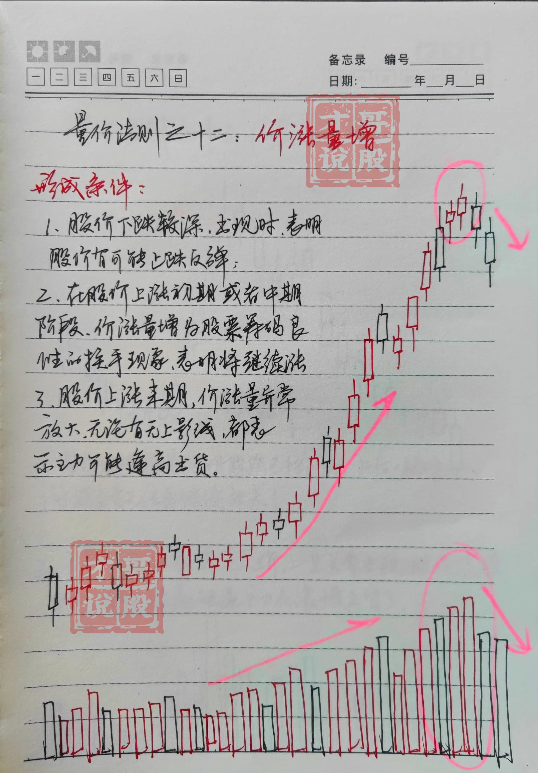 备忘录 编号
一 二 三 四 五 六 日
日期: 年 月 日
量价法则之十二:价涨量增
形成条件:
1、股价下跌较深,出现时,表明
股价有可能止跌反弹;
2、在股价上涨初期或者中期
阶段、价涨量增为股票筹码良
性的换手现象,表明将继续涨
3、股价上涨末期,价涨量异常
放大,无论有无上影线,都表
示主力可能逢高出货。
十哥
说股
十哥
说股